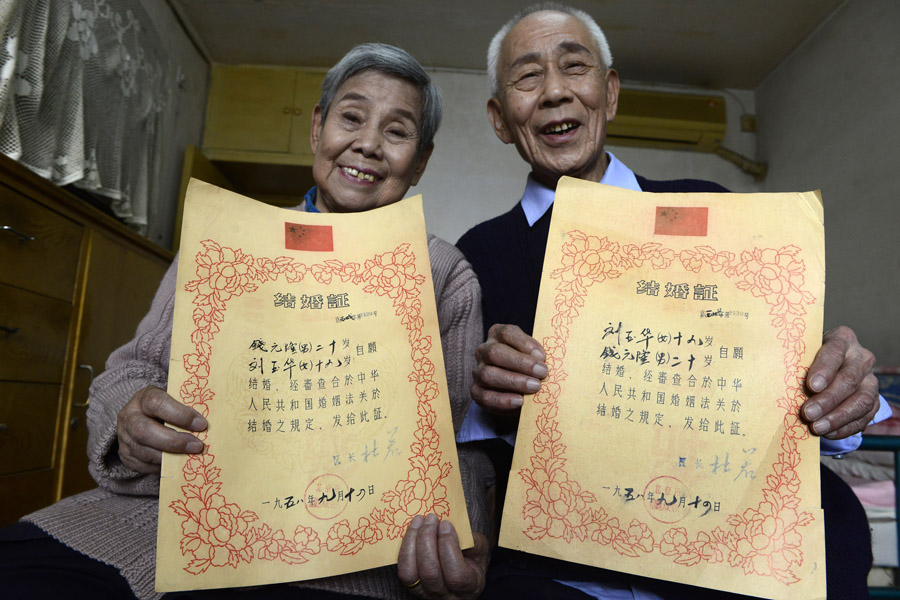 结婚証
钱元隆(男)二十岁
刘玉华(女)十九岁 自願
结婚，经審查合於中华
人民共和国婚姻法关於
结婚之規定，发给此証。
区长 杜若
一九五八年九月十四日
结婚証
刘玉华(女)十九岁
钱元隆(男)二十岁 自願
结婚，经審查合於中华
人民共和国婚姻法关於
结婚之規定，发给此証。
区长 杜若
一九五八年九月十四日